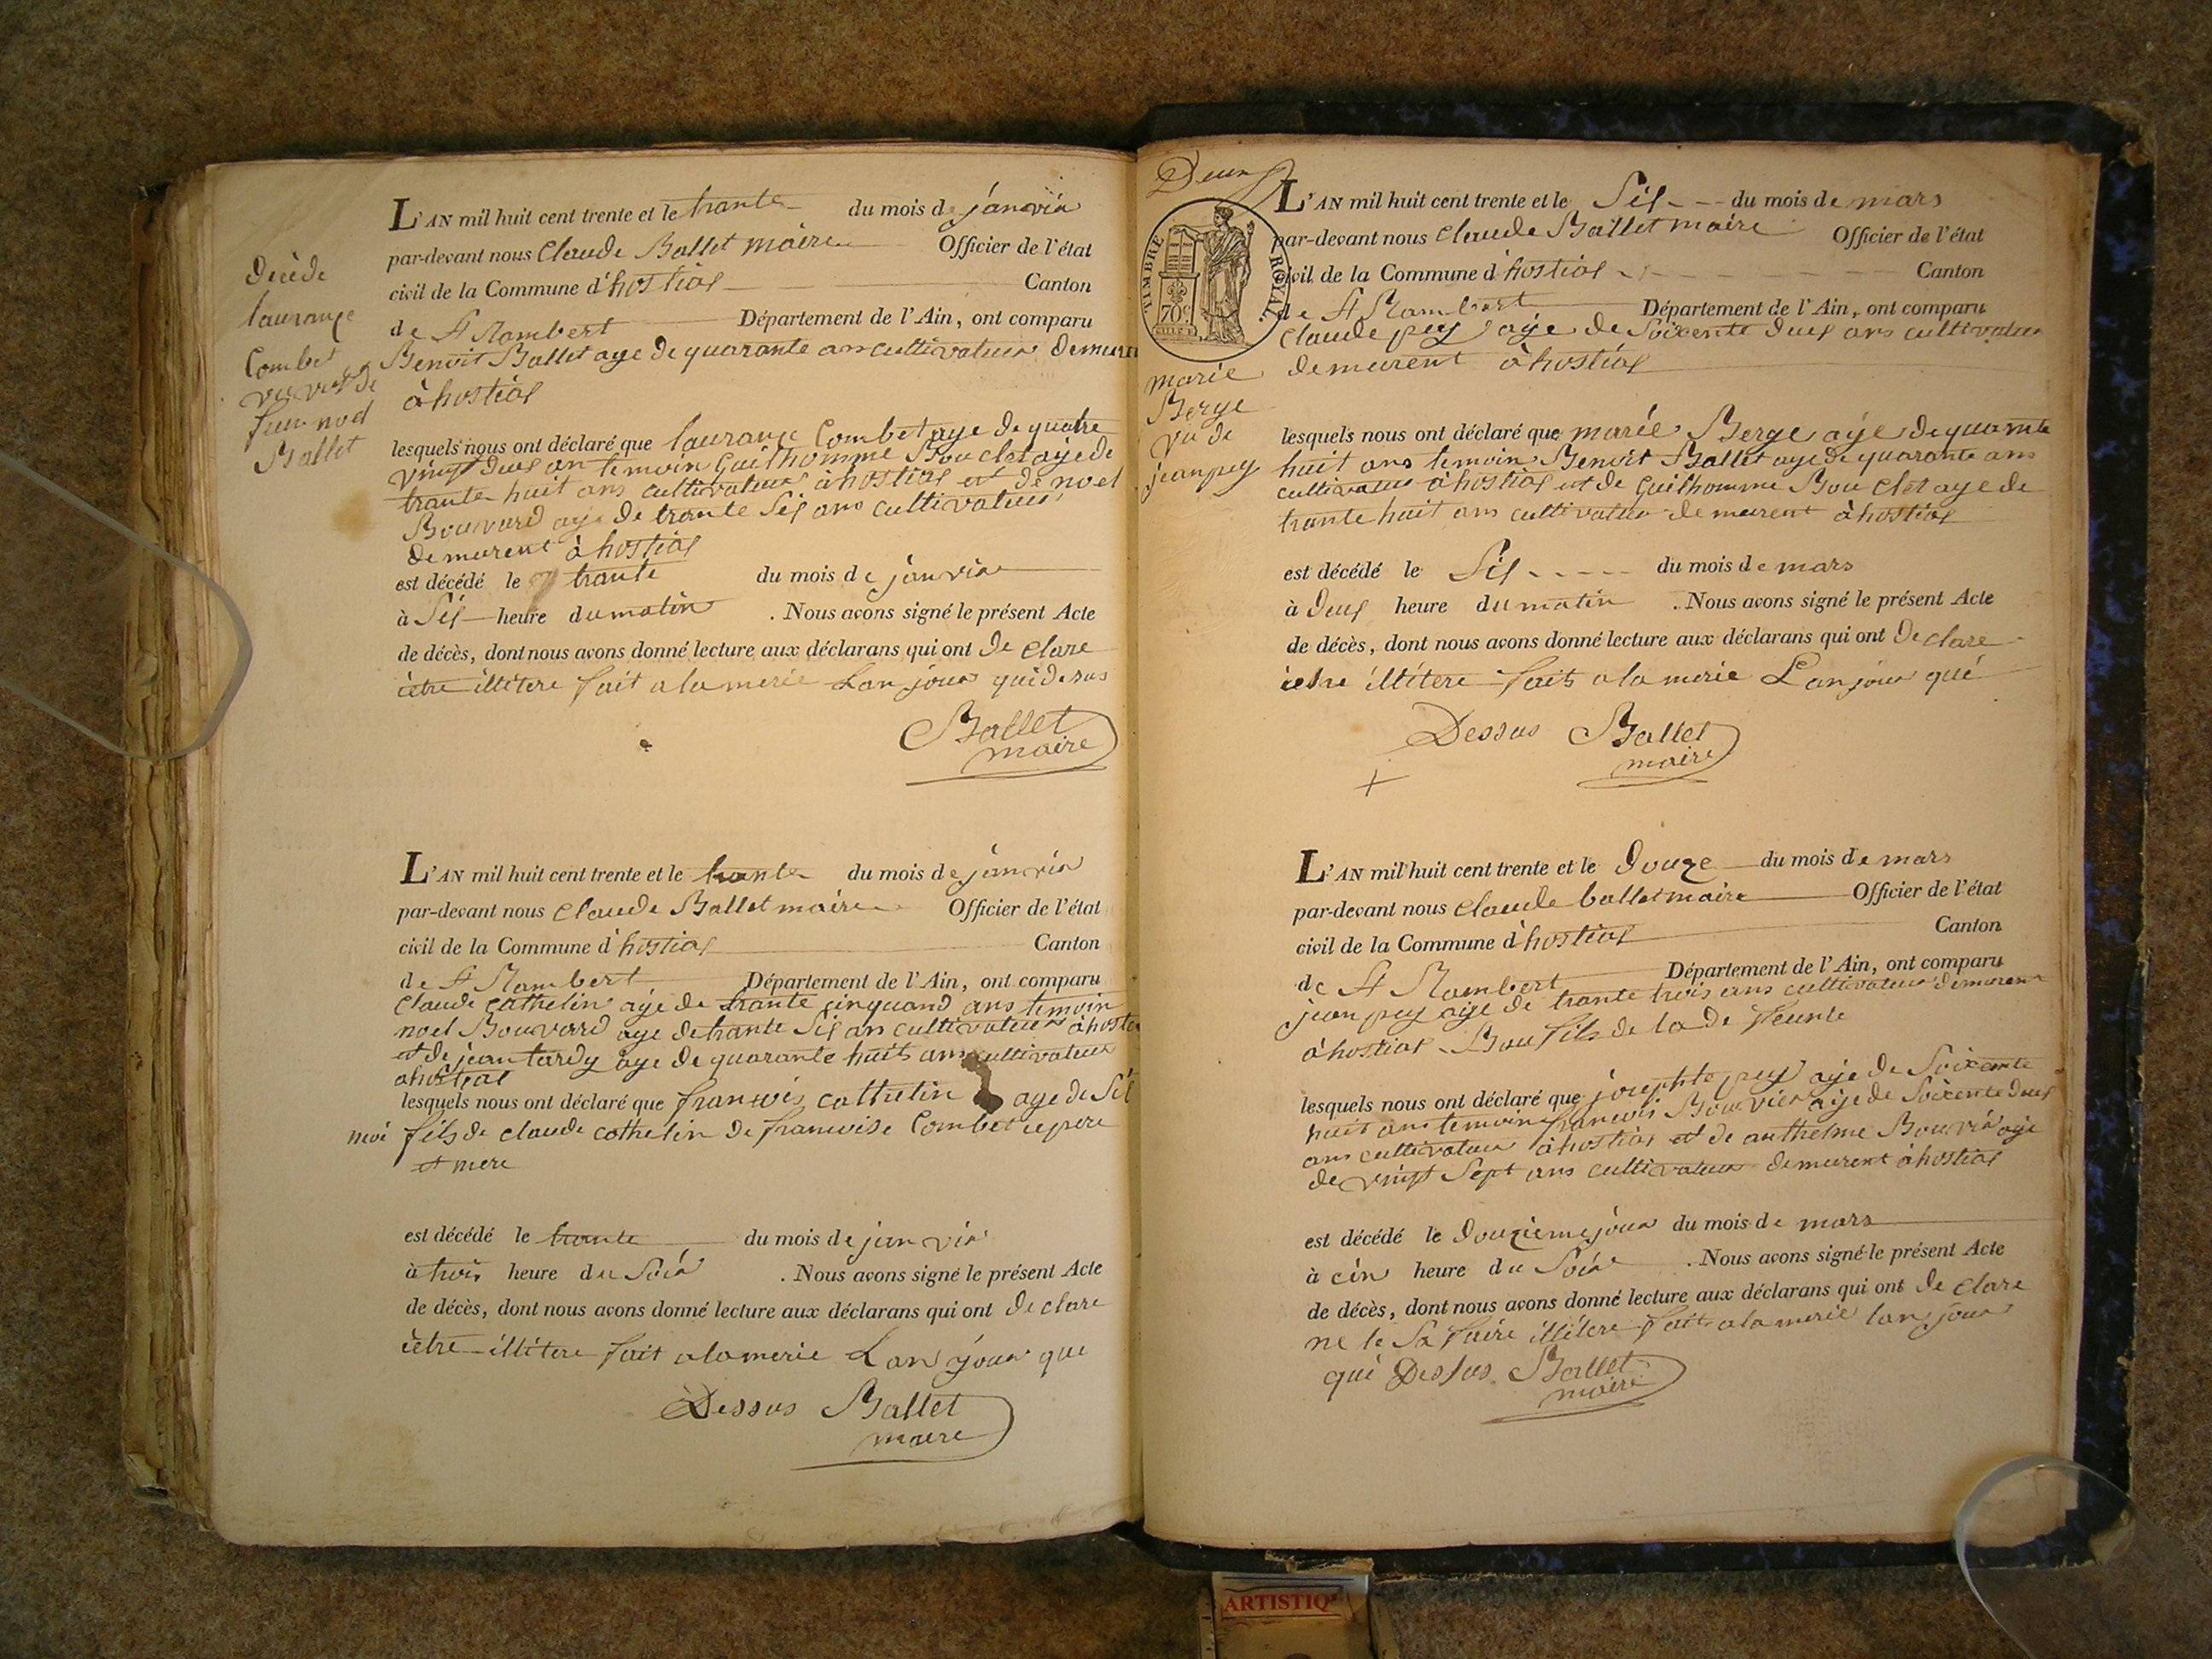 décède
laurange
Combet
vuve de
feu noel
Ballet
L'AN mil huit cent trente et le trante du mois de janvié
par-devant nous Claude Ballet maire Officier de l'état
civil de la Commune d'hostias Canton
de St Rambert Département de l'Ain, ont comparu
Benoit Ballet age de quarante ans cultivateur demuren
à hostias
lesquels nous ont déclaré que laurange Combet age de quatre
vingt deus an temoin Guilhomme Bouclet age de
trante huit ans cultivateur à hostias et de noel
Bouvard age de trante Sis ans cultivateur
demurent à hostias
est décédé le trante du mois de janvie
à Sis heure du matin . Nous avons signé le présent Acte
de décès, dont nous avons donné lecture aux déclarans qui ont de clare
ietre illitere fait a la merie Lan jour qui desus
Ballet
maire
L'AN mil huit cent trente et le trante du mois de janvié
par-devant nous Claude Ballet maire Officier de l'état
civil de la Commune d'hostias Canton
de St Rambert Département de l'Ain, ont comparu
Claude Cathelin age de trante cinquand ans temoin
noel Bouvard age de trante Sis an cultivateur à hostia
et de jean tardy age de quarante huit ans cultivateur
a hostias
lesquels nous ont déclaré que francois cathelin age de Sis
moi fils de claude cathelin de francoise Combet ce pere
et mere
est décédé le trante du mois de janvié
à trois heure du Soiá . Nous avons signé le présent Acte
de décès, dont nous avons donné lecture aux déclarans qui ont de clare
ietre illitere fait a la merie Lan jour que
Dessus Ballet
maire
Deus
TIMBRE ROYAL.
70c.
marie
Berge
vu de
jean pey
L'AN mil huit cent trente et le Sis du mois de mars
par-devant nous Claude Ballet maire Officier de l'état
civil de la Commune d'hostias Canton
de St Rambert Département de l'Ain, ont comparu
Claude pey age de Soixente deus ans cultivateur
demeurent à hostias
lesquels nous ont déclaré que marie Berge age de quarante
huit ans temoin Benoit Ballet age de quarante ans
cultivateur à hostias et de Guilhomme Bouclet age de
trante huit ans cultivateur demeurent à hostias
est décédé le Sis du mois de mars
à deus heure du matin . Nous avons signé le présent Acte
de décès, dont nous avons donné lecture aux déclarans qui ont de clare
ietre illitere fait a la merie Lan jour qué
Dessus Ballet
maire
L'AN mil huit cent trente et le Douze du mois de mars
par-devant nous Claude ballet maire Officier de l'état
civil de la Commune d'hostias Canton
de St Rambert Département de l'Ain, ont comparu
jean pey age de trante trois ans cultivateur demurent
à hostias Bau fils de la de feunte
lesquels nous ont déclaré que josephte pey age de Soixente
huit ans temoin francois Bouvier age de Soixente deus
ans cultivateur à hostias et de anthelme Bouvié age
de vingt Sept ans cultivateur demurent à hostias
est décédé le Douzieme jour du mois de mars
à cin heure du Soié . Nous avons signé le présent Acte
de décès, dont nous avons donné lecture aux déclarans qui ont de clare
ne le Sa faire illitere fait a la merie lan jour
qui Dessus Ballet
maire
ARTISTIQ